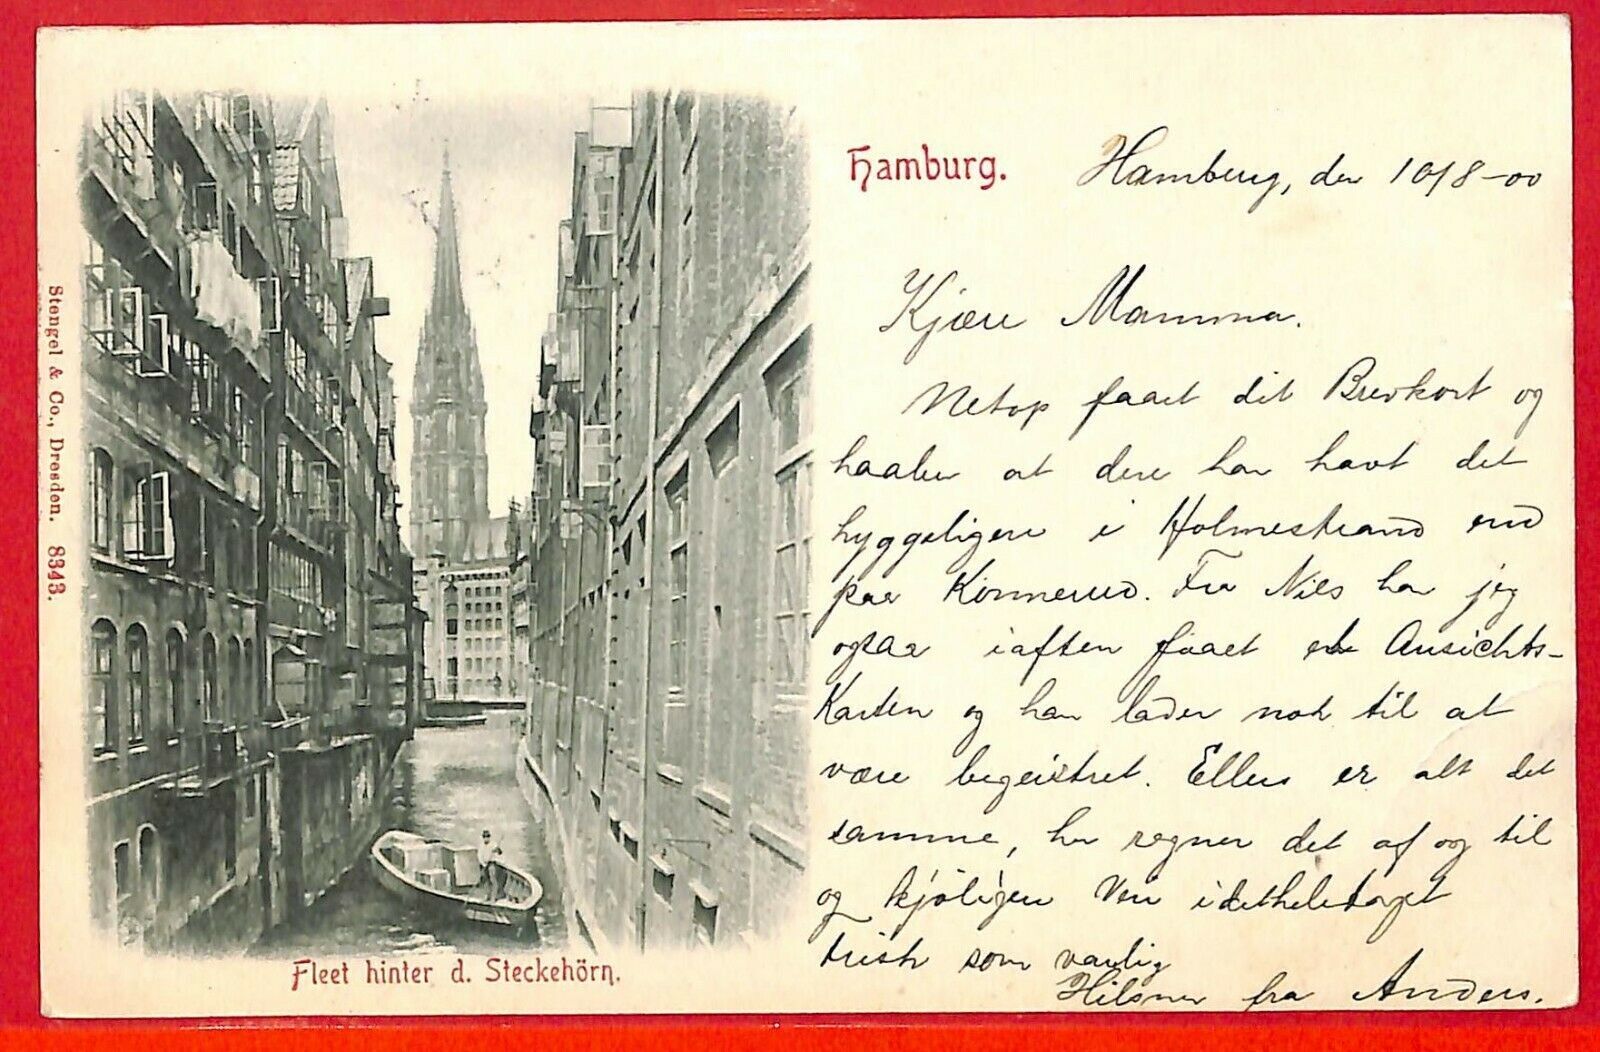 Hamburg.
Hamburg, den 10/8-00
Kjære Mamma.
Netop faaet dit Brevkort og
haaber at dere har havt det
hyggeligere i Holmestrand end
paa Konnerud. Fra Nils har jeg
ogsaa iaften faaet et Ansichts-
Karten og han lader nok til at
være begeistret. Ellers er alt det
samme, her regner det af og til
og kjøligen Veir idetheletaget
trist som vanlig
Hilsner fra Anders.
Fleet hinter d. Steckehörn.
Stengel & Co., Dresden. 8343.